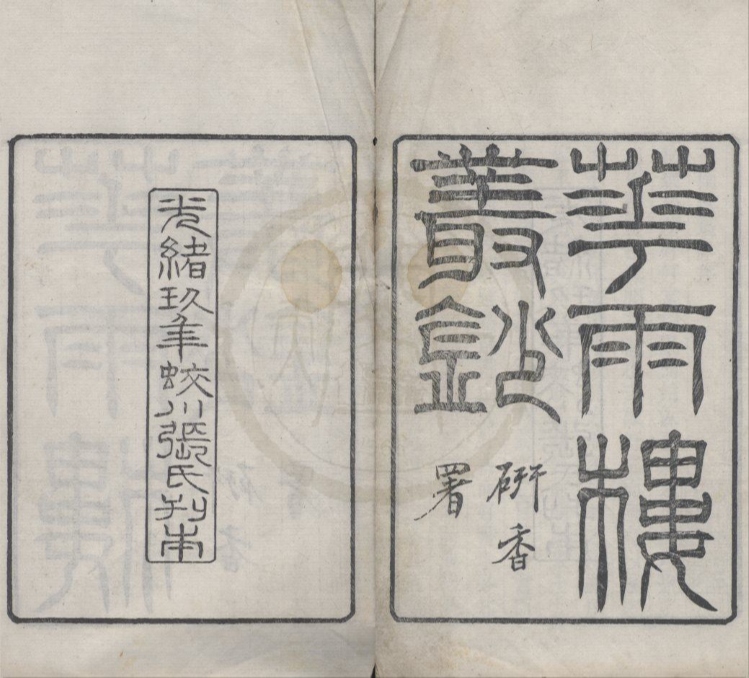 華雨樓
叢鈔
硏香
署
光緒玖年蛟川張氏刊本